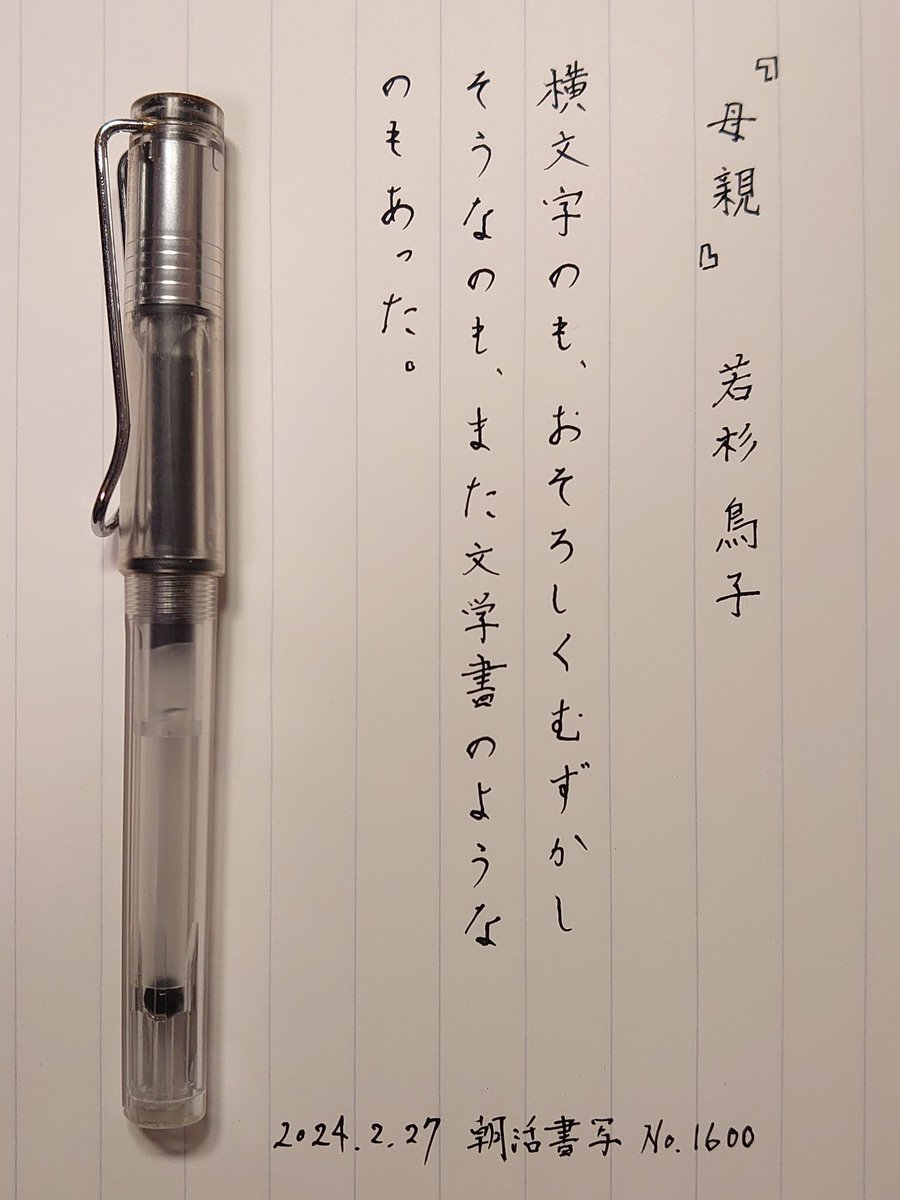 『母親』 若杉鳥子
横文字のも、おそろしくむずかし
そうなのも、また文学書のような
のもあった。
2024.2.27 朝活書写 No.1600